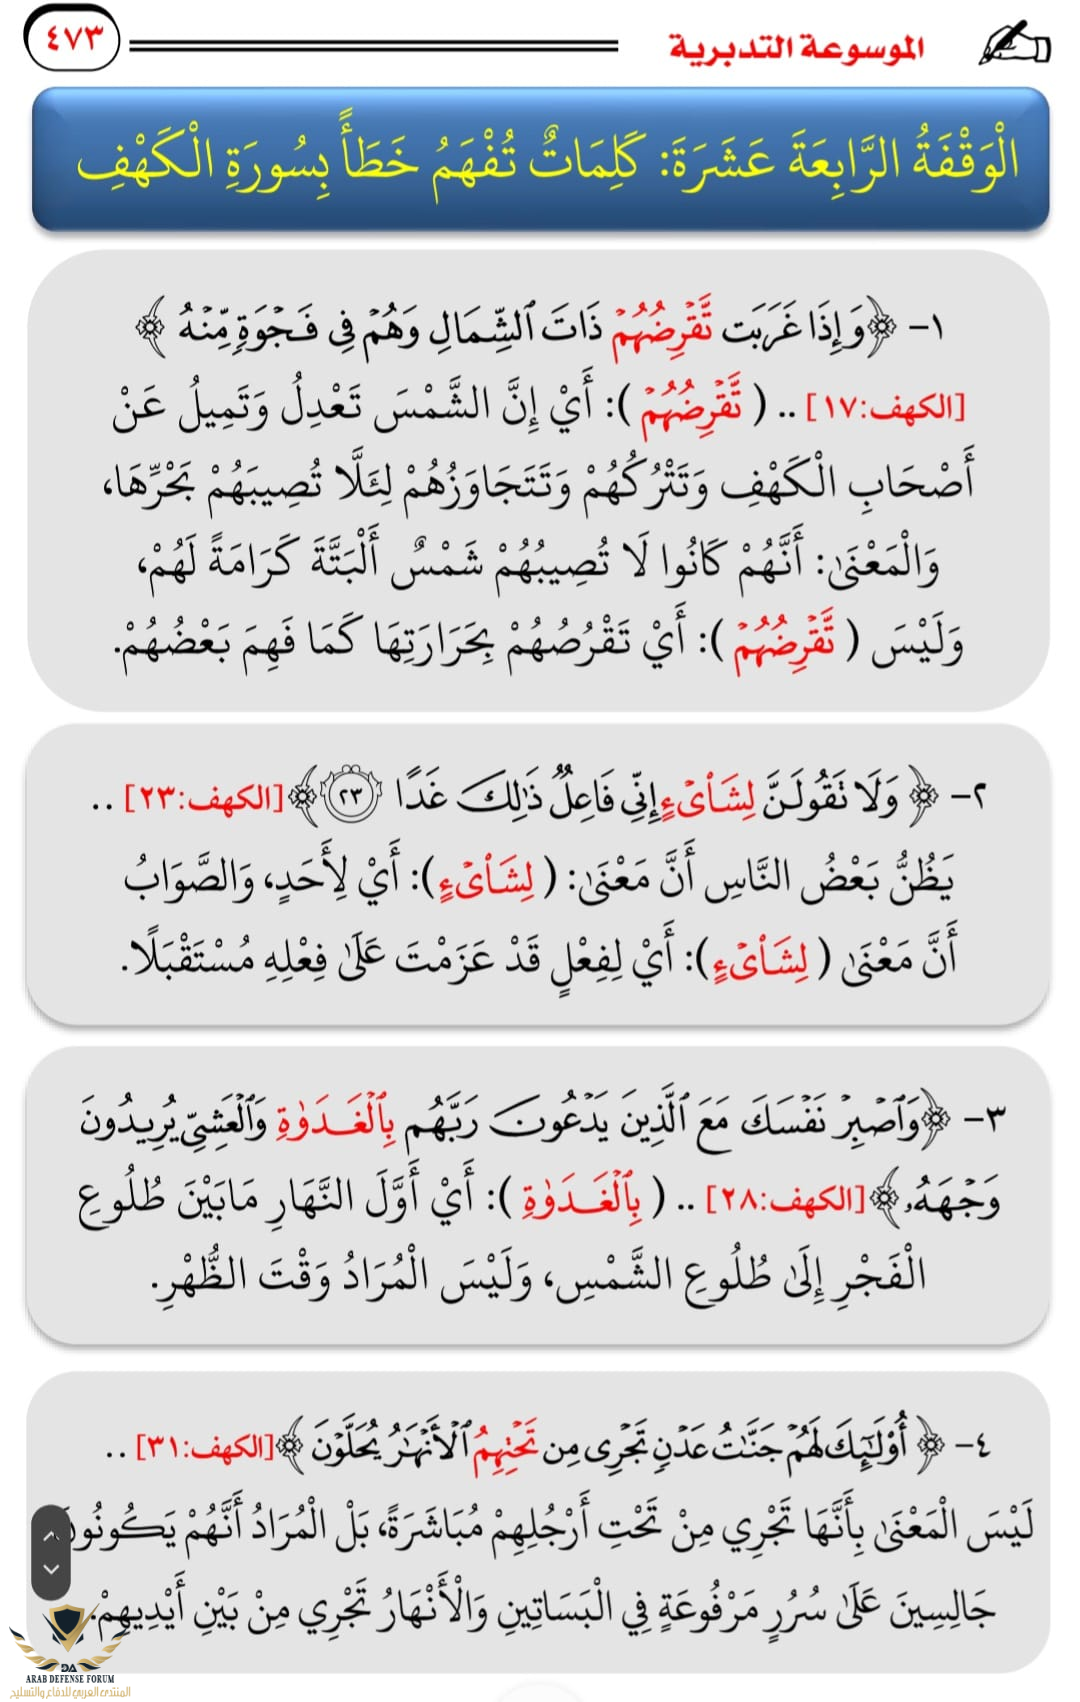 الموسوعة التدبرية
٤٧٣
الْوَقْفَةُ الرَّابِعَةَ عَشَرَةَ: كَلِمَاتٌ تُفْهَمُ خَطَأً بِسُورَةِ الْكَهْفِ
١- ﴿وَإِذَا غَرَبَت تَّقْرِضُهُمْ ذَاتَ ٱلشِّمَالِ وَهُمْ فِى فَجْوَةٍ مِّنْهُ ﴾
[الكهف:١٧] .. ( تَّقْرِضُهُمْ ): أَيْ إِنَّ الشَّمْسَ تَعْدِلُ وَتَمِيلُ عَنْ
أَصْحَابِ الْكَهْفِ وَتَتْرُكُهُمْ وَتَتَجَاوَزُهُمْ لِئَلَّا تُصِيبَهُمْ بَحْرِّهَا،
وَالْمَعْنَىٰ: أَنَّهُمْ كَانُوا لَا تُصِيبُهُمْ شَمْسٌ أَلْبَتَّةَ كَرَامَةً لَهُمْ،
وَلَيْسَ ( تَّقْرِضُهُمْ ): أَيْ تَقْرُصُهُمْ بِحَرَارَتِهَا كَمَا فَهِمَ بَعْضُهُمْ.
٢- ﴿ وَلَا تَقُولَنَّ لِشَا۟ىْءٍ إِنِّى فَاعِلٌ ذَٰلِكَ غَدًا ٢٣ ﴾ [الكهف:٢٣] ..
يَظُنُّ بَعْضُ النَّاسِ أَنَّ مَعْنَىٰ: ( لِشَا۟ىْءٍ ): أَيْ لِأَحَدٍ، وَالصَّوَابُ
أَنَّ مَعْنَىٰ ( لِشَا۟ىْءٍ ): أَيْ لِفِعْلٍ قَدْ عَزَمْتَ عَلَىٰ فِعْلِهِ مُسْتَقْبَلًا.
٣- ﴿وَٱصْبِرْ نَفْسَكَ مَعَ ٱلَّذِينَ يَدْعُونَ رَبَّهُم بِٱلْغَدَوٰةِ وَٱلْعَشِىِّ يُرِيدُونَ
وَجْهَهُۥ ﴾ [الكهف:٢٨] .. ( بِٱلْغَدَوٰةِ ): أَيْ أَوَّلَ النَّهَارِ مَابَيْنَ طُلُوعِ
الْفَجْرِ إِلَىٰ طُلُوعِ الشَّمْسِ، وَلَيْسَ الْمُرَادُ وَقْتَ الظُّهْرِ.
٤- ﴿ أُو۟لَٰٓئِكَ لَهُمْ جَنَّٰتُ عَدْنٍ تَجْرِى مِن تَحْتِهِمُ ٱلْأَنْهَٰرُ يُحَلَّوْنَ ﴾ [الكهف:٣١] ..
لَيْسَ الْمَعْنَىٰ بِأَنَّهَا تَجْرِي مِنْ تَحْتِ أَرْجُلِهِمْ مُبَاشَرَةً، بَلْ الْمُرَادُ أَنَّهُمْ يَكُونُونَ
جَالِسِينَ عَلَىٰ سُرُرٍ مَرْفُوعَةٍ فِي الْبَسَاتِينِ وَالْأَنْهَارُ تَجْرِي مِنْ بَيْنِ أَيْدِيهِمْ.
ARAB DEFENSE FORUM
المنتدى العربي للدفاع والتسليح